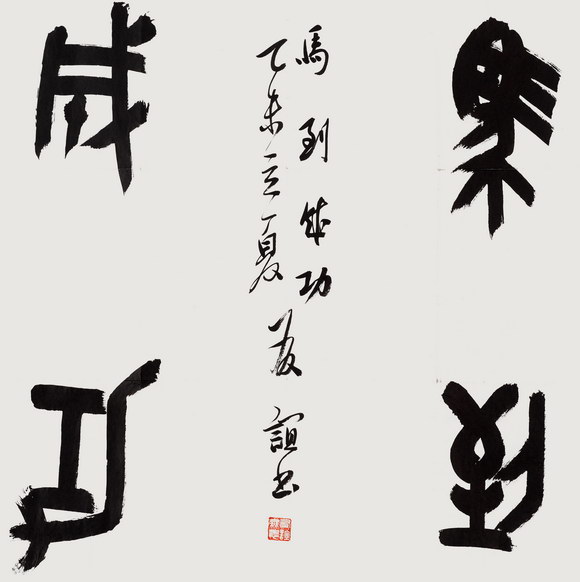 馬到
成功
馬到成功
乙未立夏 誼書